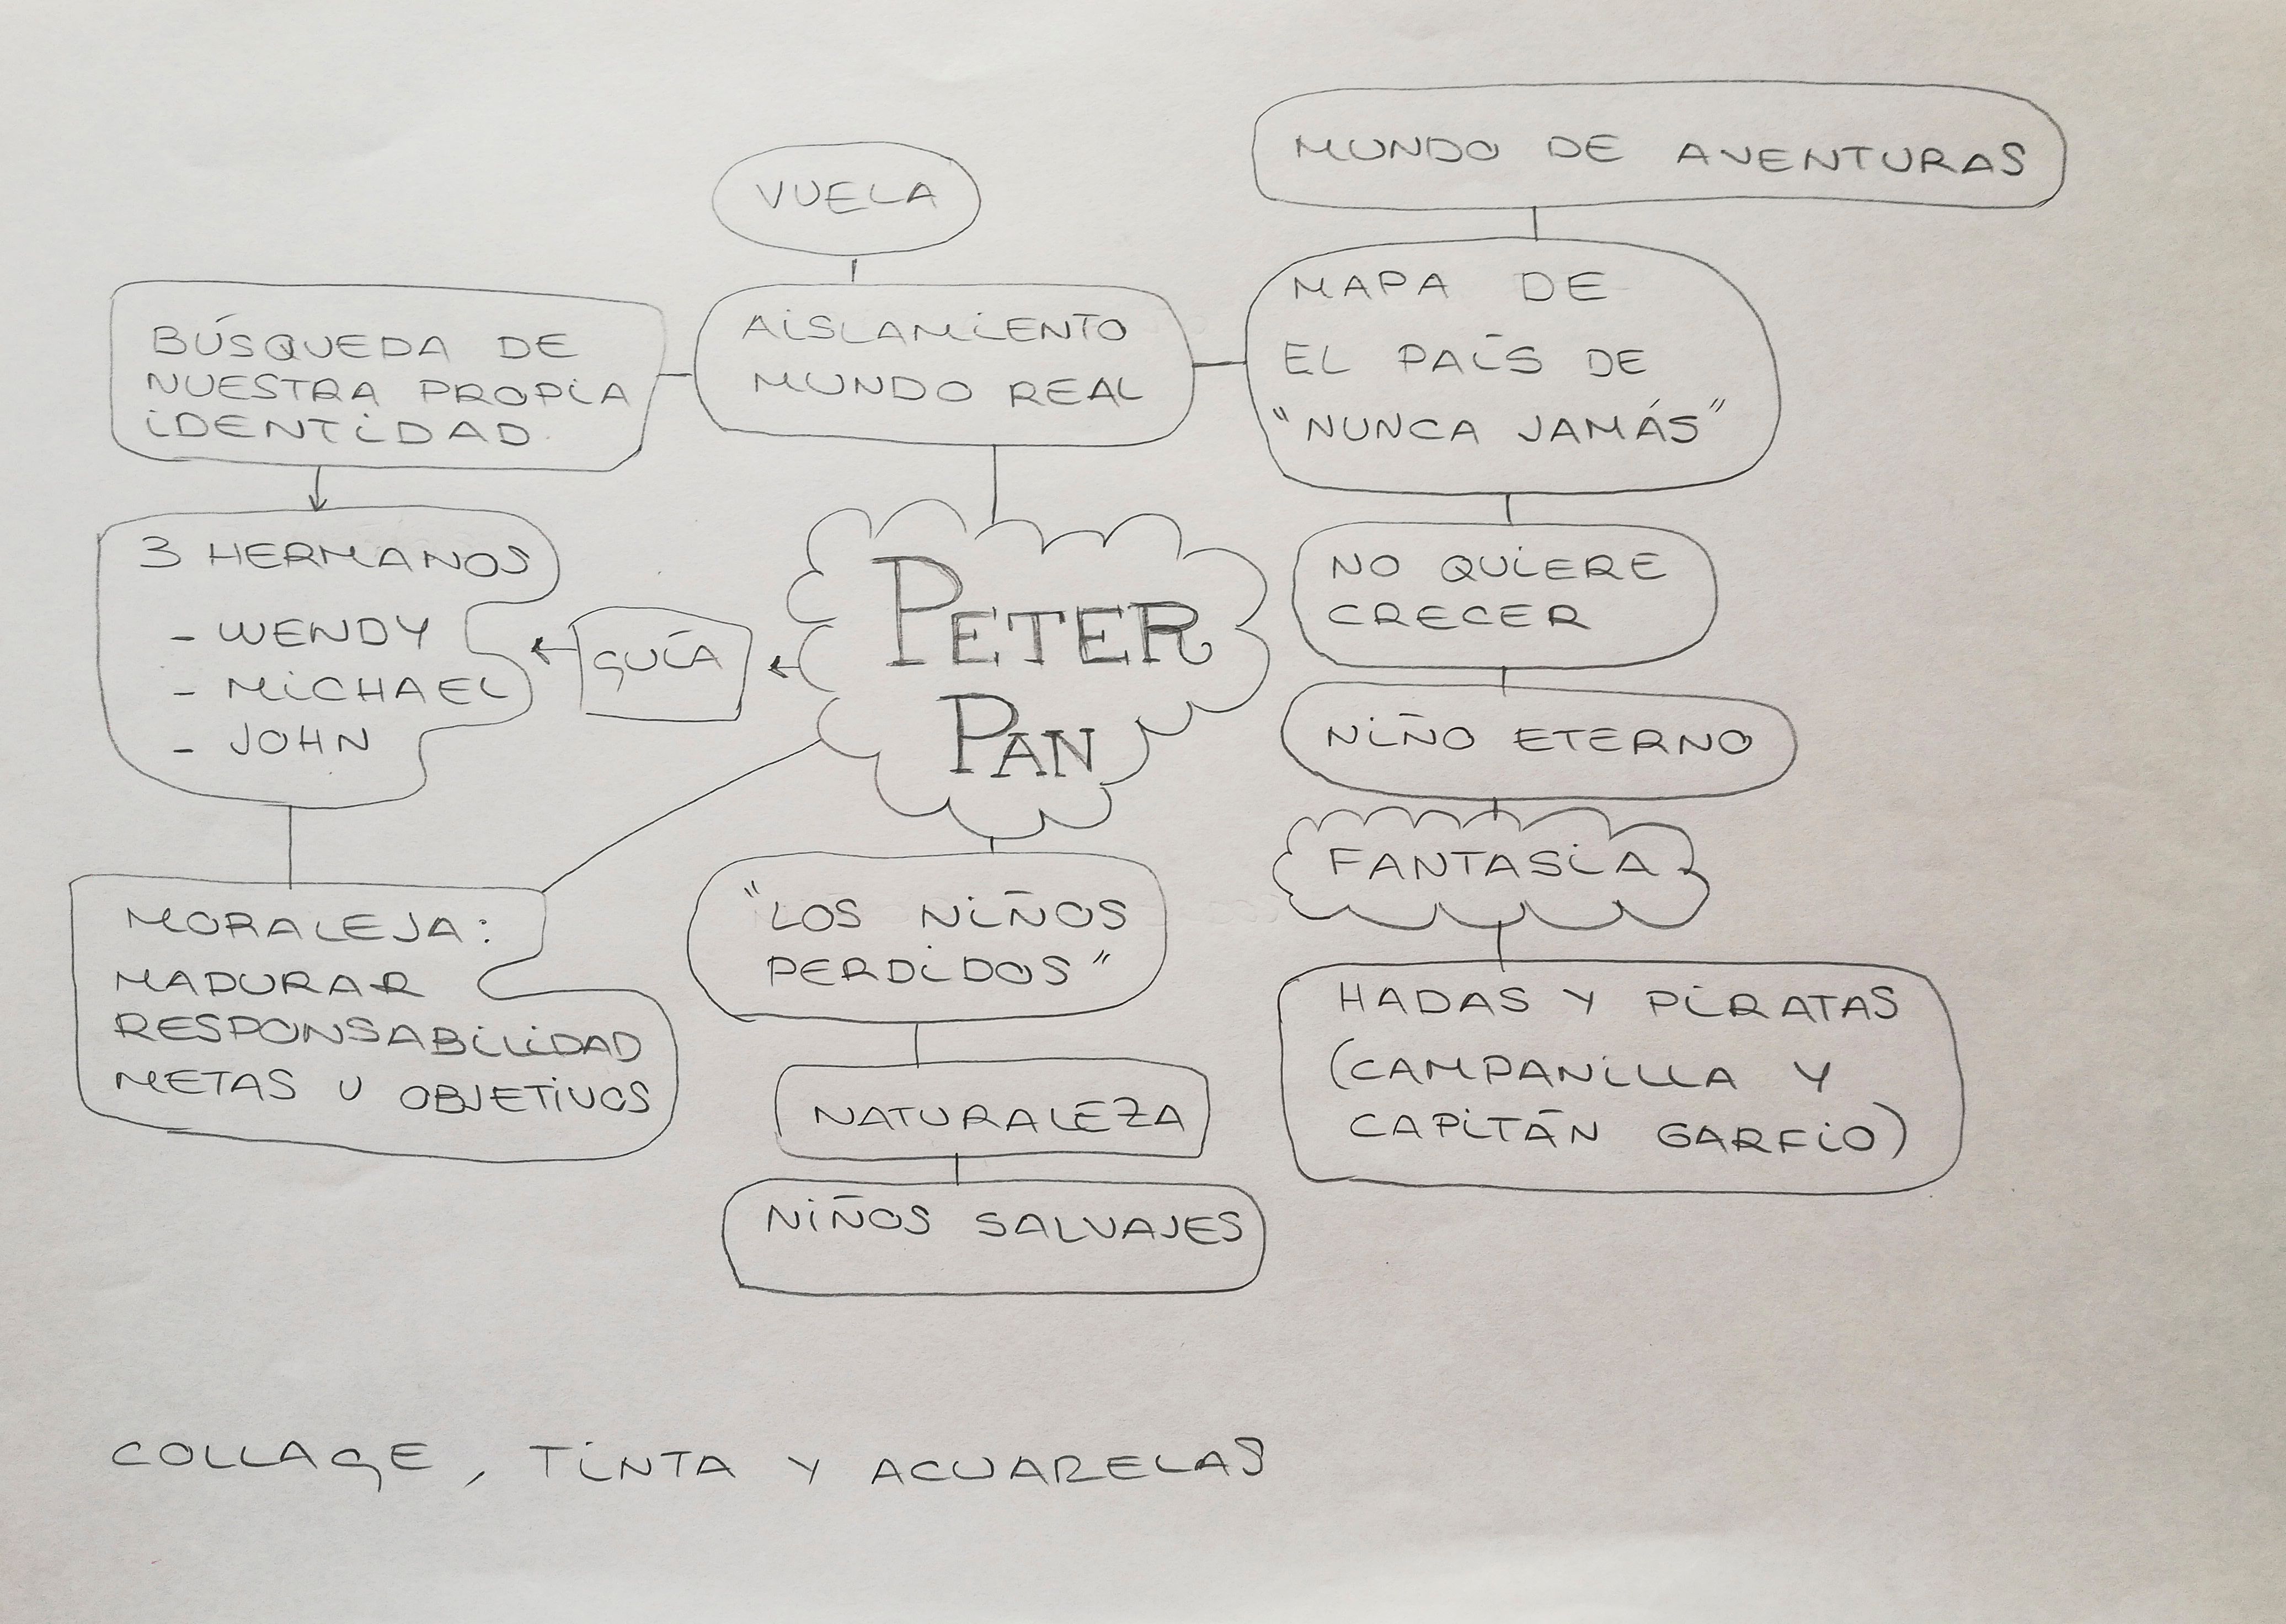 MUNDO DE AVENTURAS
VUELA
MAPA DE
EL PAÍS DE
"NUNCA JAMÁS"
AISLAMIENTO
MUNDO REAL
BÚSQUEDA DE
NUESTRA PROPIA
IDENTIDAD
3 HERMANOS
- WENDY
- MICHAEL
- JOHN
GUÍA
PETER
PAN
NO QUIERE
CRECER
NIÑO ETERNO
FANTASIA
HADAS Y PIRATAS
(CAMPANILLA Y
CAPITÁN GARFIO)
MORALEJA:
MADURAR
RESPONSABILIDAD
METAS U OBJETIVOS
"LOS NIÑOS
PERDIDOS"
NATURALEZA
NIÑOS SALVAJES
COLLAGE, TINTA Y ACUARELAS